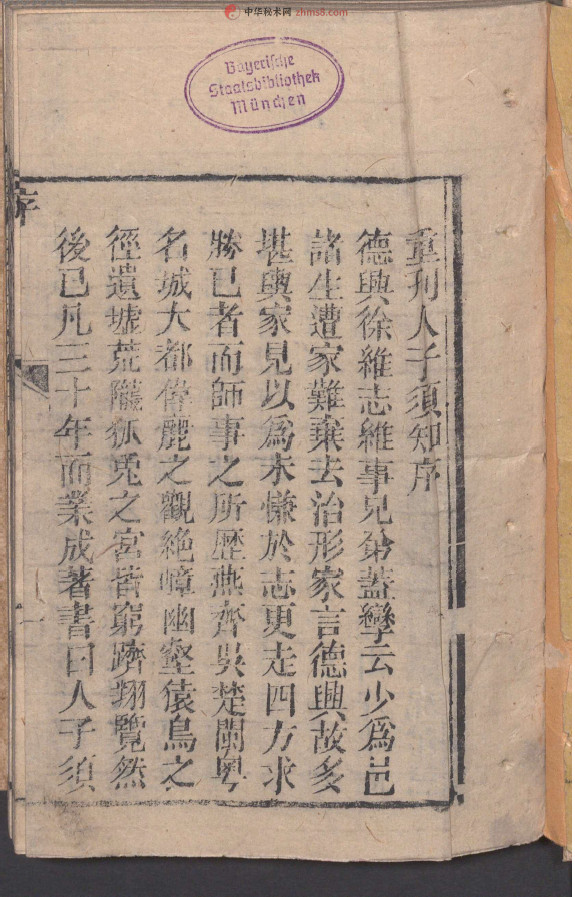 中华秘术网 zhms8.com
Bayerische
Staatsbibliothek
München
重刊人子須知序
德興徐維志維事兄弟蓋孿云少爲邑
諸生遭家難棄去治形家言德興故多
堪輿家見以爲未慊於志更走四方求
勝已者而師事之所歴燕齊吳楚閩粤
名城大都偉麗之觀絶嶂幽壑猿鳥之
徑遺墟荒隴狐兎之宮皆窮躋翔覽然
後已凡三十年而業成著書曰人子須
序
一